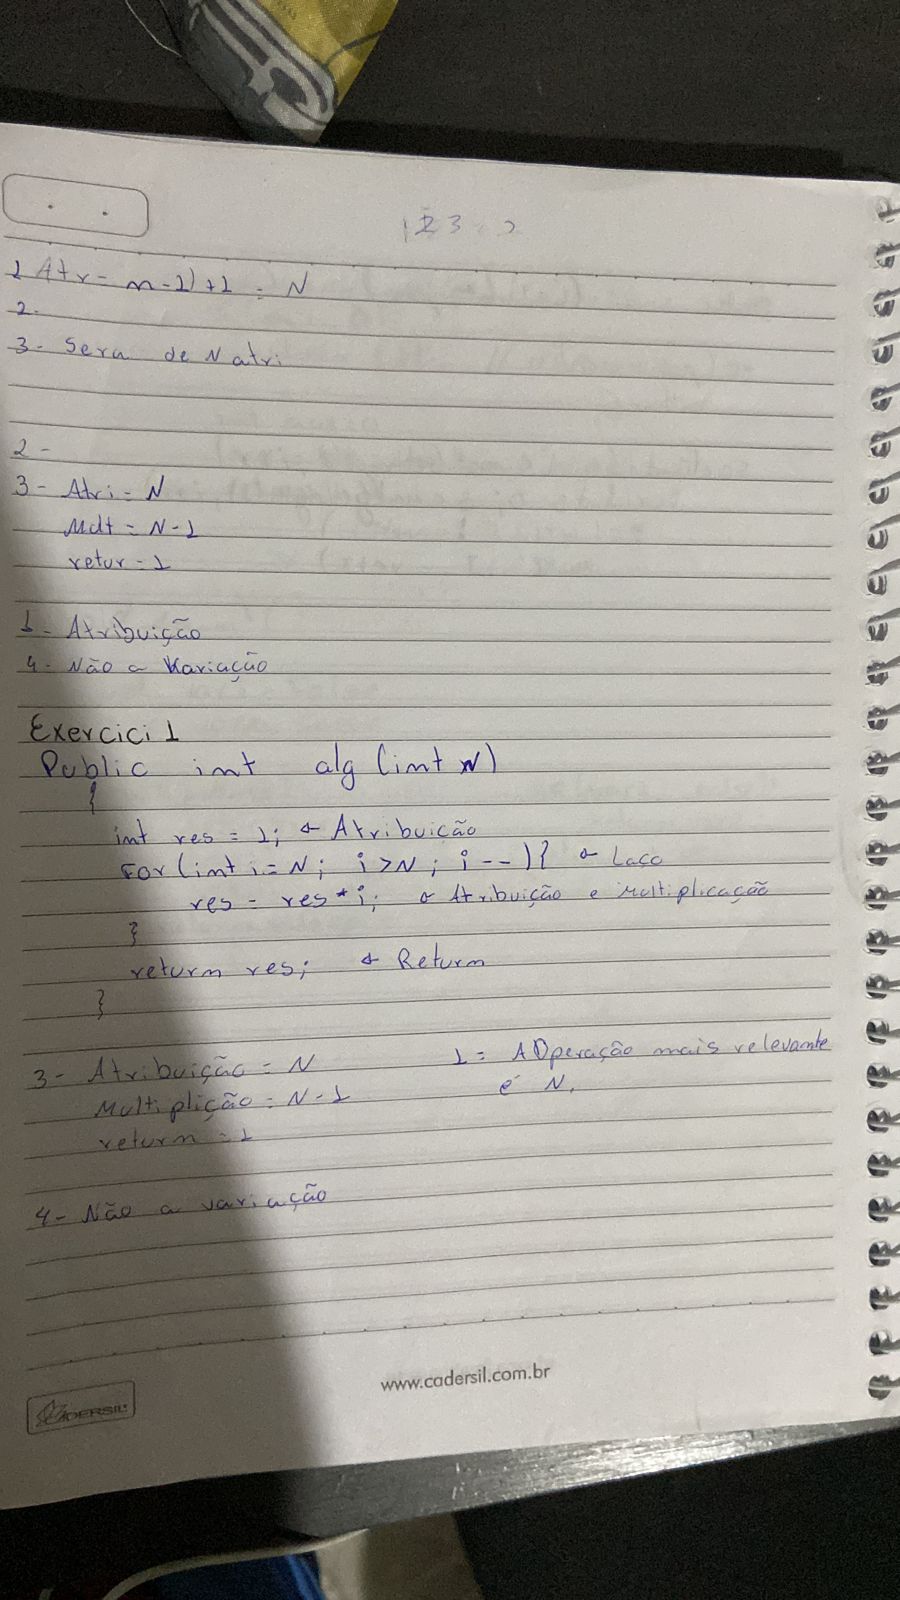 1 Atr = n-1)+1 = N
2.
3- Sera de N atri.
2-
3- Atri = N
Mult = N-1
retur = 1
1- Atribuição
4- Não a Variação
Exercici 1
Public int alg (int N)
{
int res = 1; ← Atribuição
For (int i = N; i > N; i--){ ← Laco
res = res * i; ← Atribuição e Multiplicação
}
return res; ← Return
}
3- Atribuição = N
Multiplição = N-1
return = 1
1 = A Operação mais relevante
é N.
4- Não a variação
www.cadersil.com.br
CADERSIL